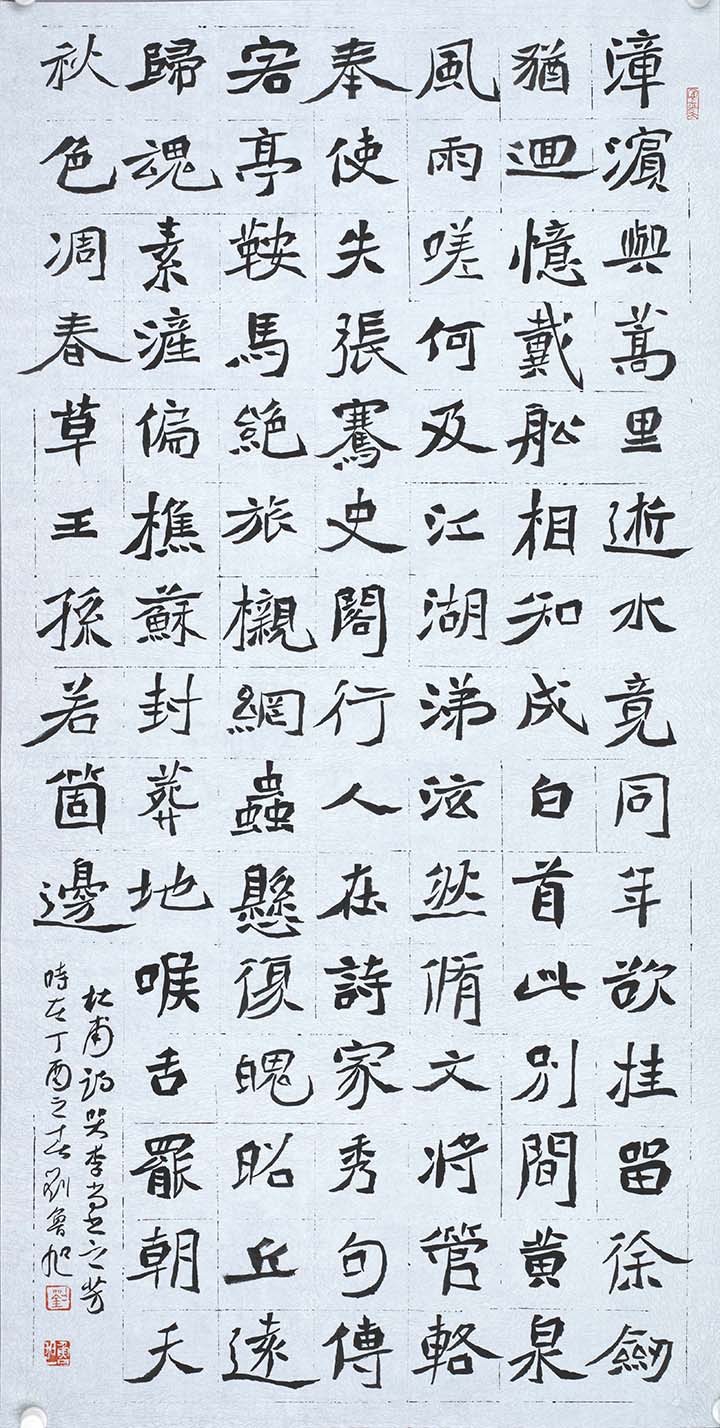 漳濱與蒿里逝水竟同年欲挂留徐劒
猶迴憶戴舩相知成白首此別間黃泉
風雨嗟何及江湖涕泫然脩文將管輅
奉使失張騫史閣行人在詩家秀句傳
客亭鞍馬絕旅櫬網蟲懸復魄昭丘遠
歸魂素滻偏樵蘇封葬地喉舌罷朝天
秋色凋春草王孫若箇邊
杜甫詩哭李尚書之芳
時在丁酉之春劉魯旭
劉